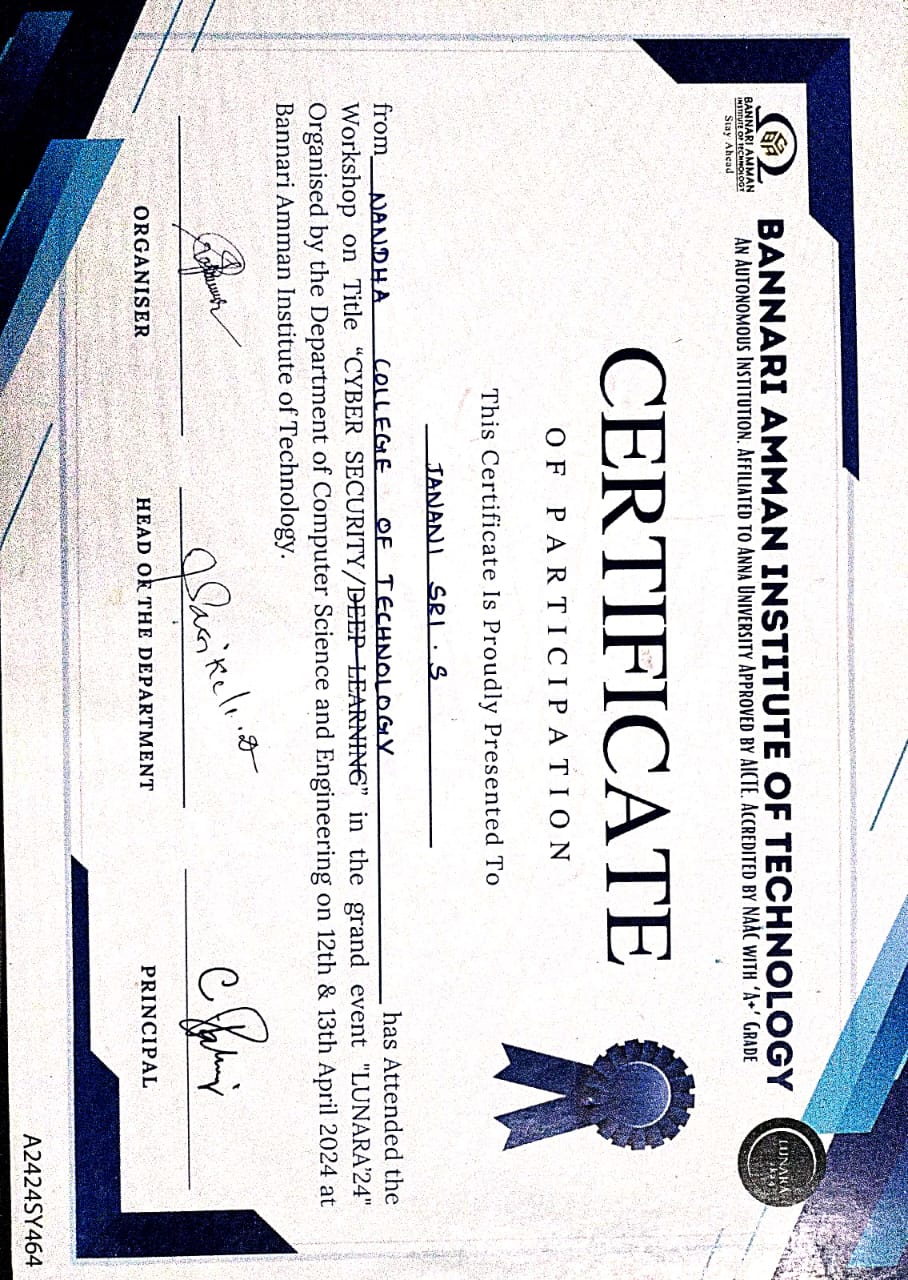 BANNARI AMMAN INSTITUTE OF TECHNOLOGY
AN AUTONOMOUS INSTITUTION. AFFILIATED TO ANNA UNIVERSITY APPROVED BY AICTE. ACCREDITED BY NAAC WITH 'A+' GRADE
BANNARI AMMAN
INSTITUTE OF TECHNOLOGY
Stay Ahead
LUNARA
CERTIFICATE
OF PARTICIPATION
This Certificate Is Proudly Presented To
JANANI SRI . S
from NANDHA COLLEGE OF TECHNOLOGY has Attended the
Workshop on Title “CYBER SECURITY/DEEP LEARNING” in the grand event "LUNARA’24"
Organised by the Department of Computer Science and Engineering on 12th & 13th April 2024 at
Bannari Amman Institute of Technology.
ORGANISER
HEAD OF THE DEPARTMENT
PRINCIPAL
A2424SY464